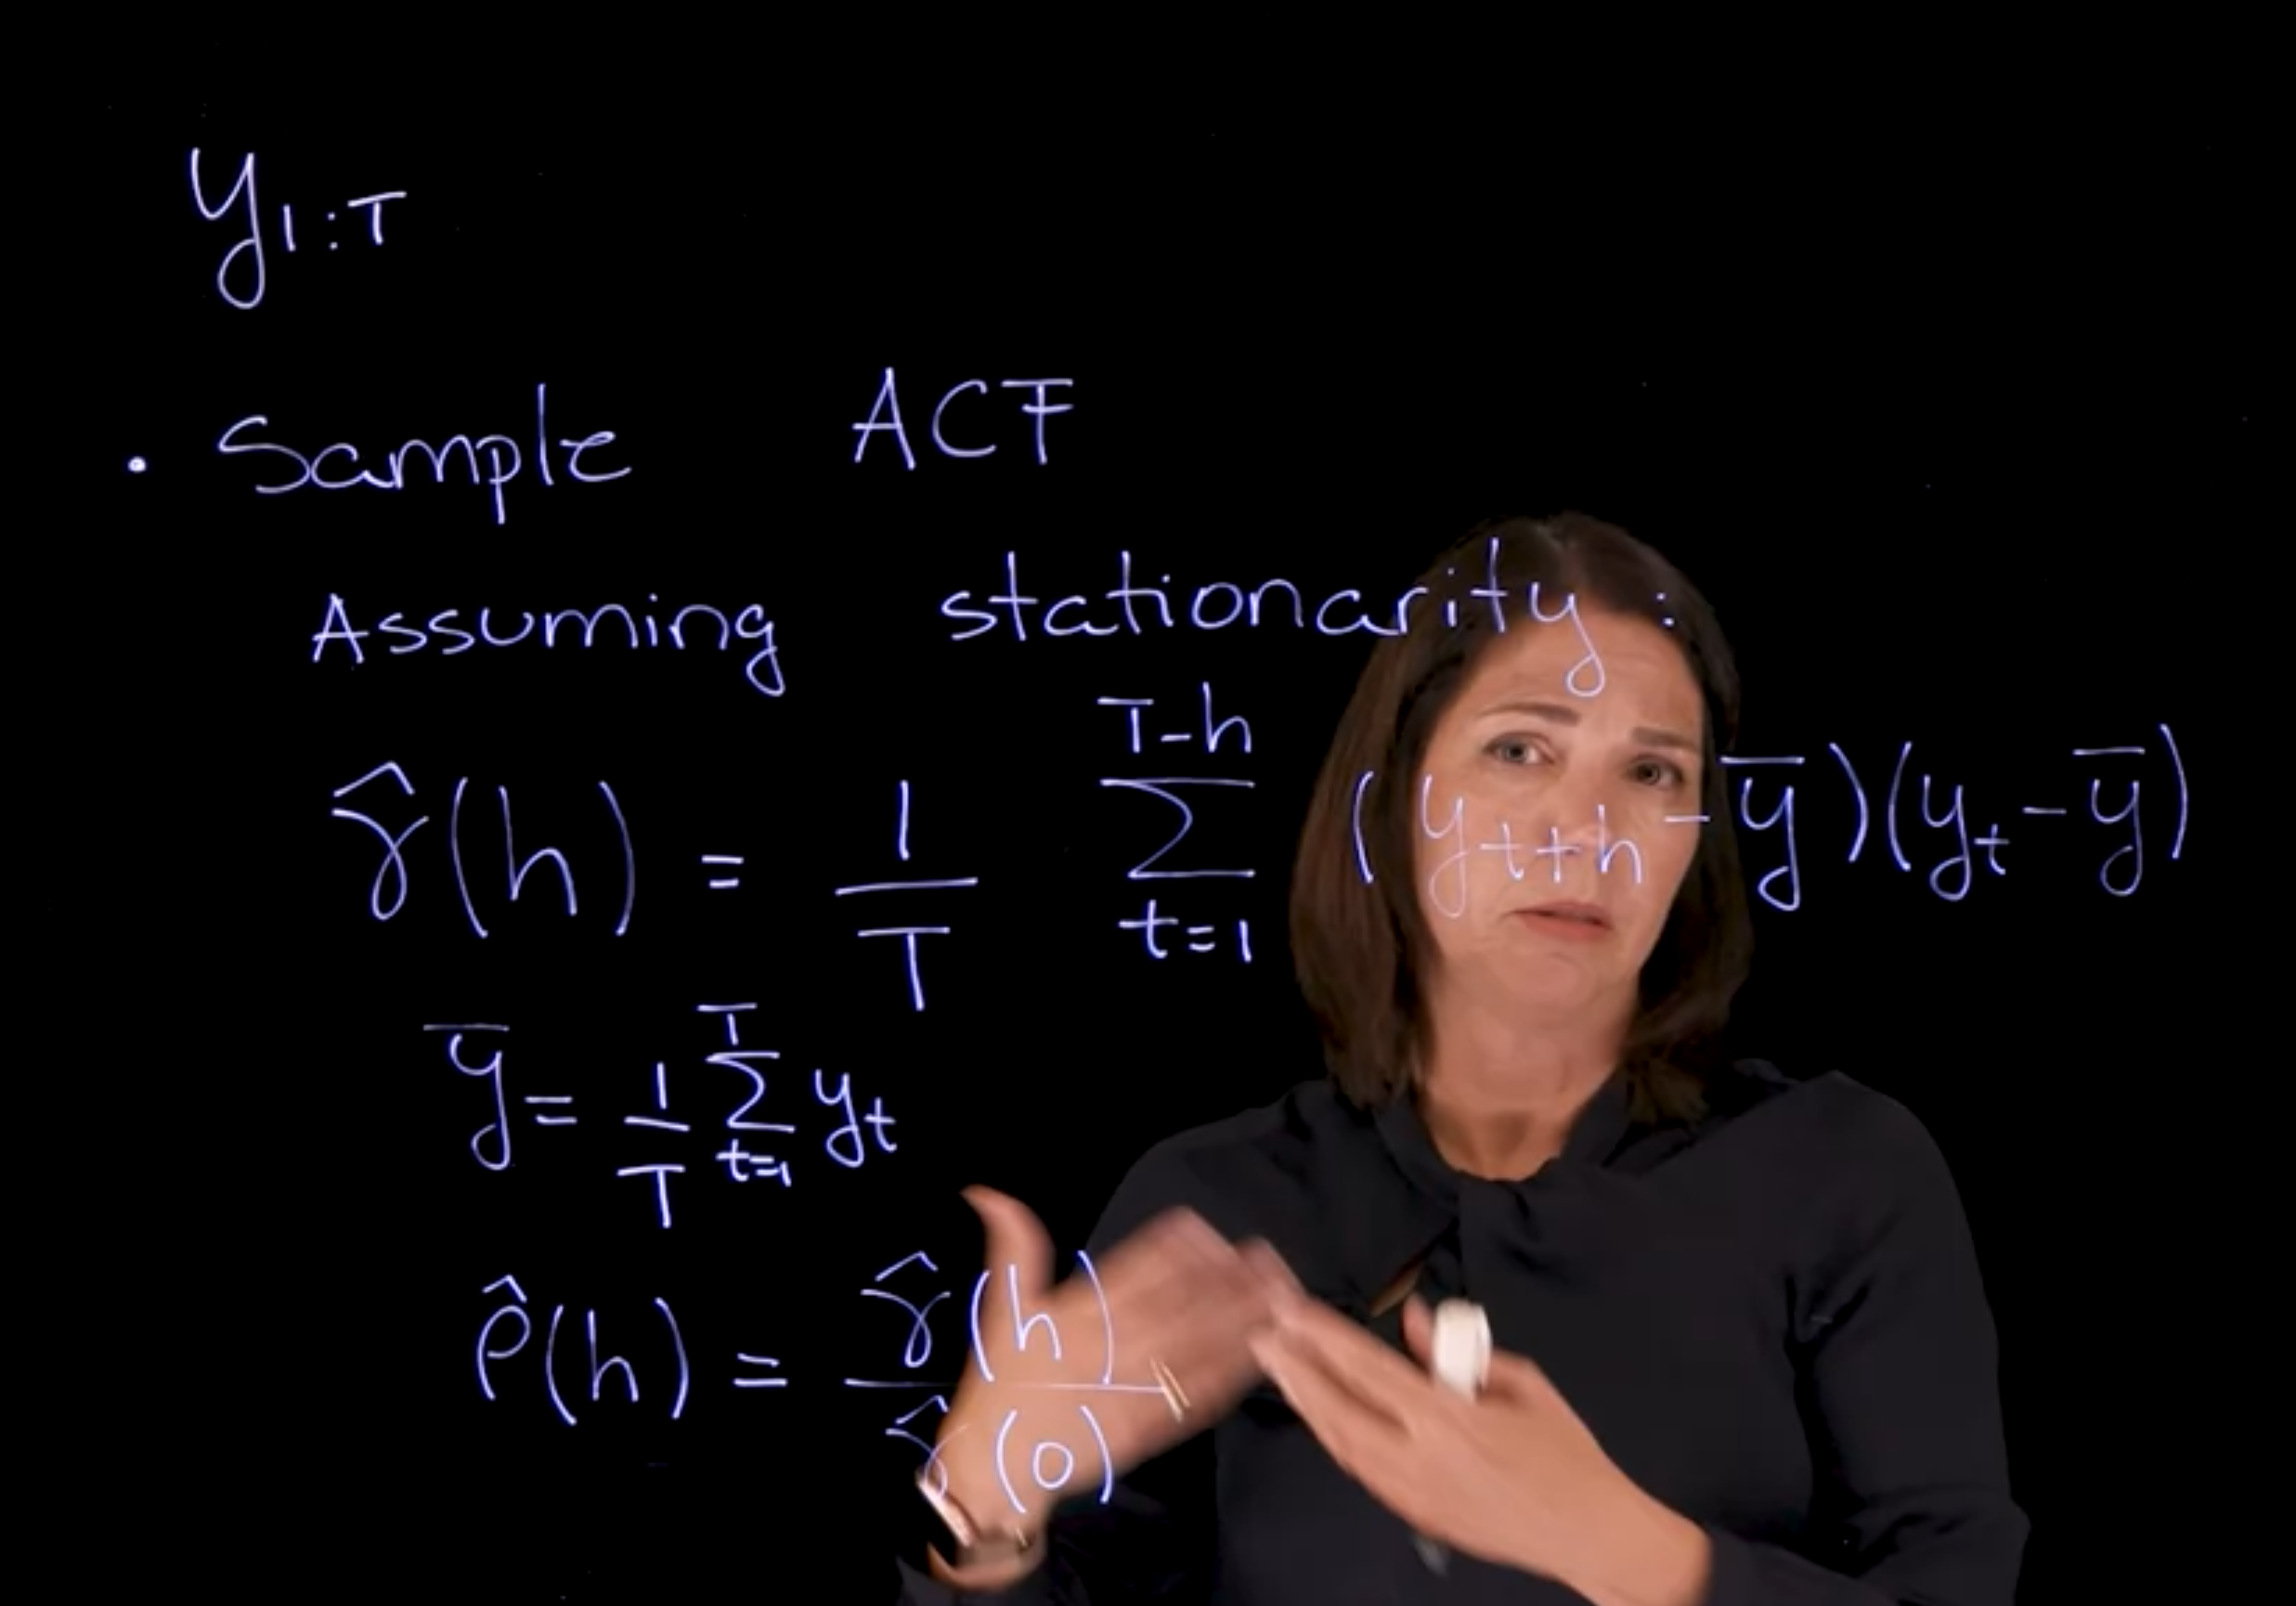 y₁:T
• Sample ACF
Assuming stationarity:
γ̂(h) = 1/T ∑_{t=1}^{T-h} (y_{t+h} - ȳ)(y_t - ȳ)
ȳ = 1/T ∑_{t=1}^{T} y_t
ρ̂(h) = γ̂(h)/γ̂(0)